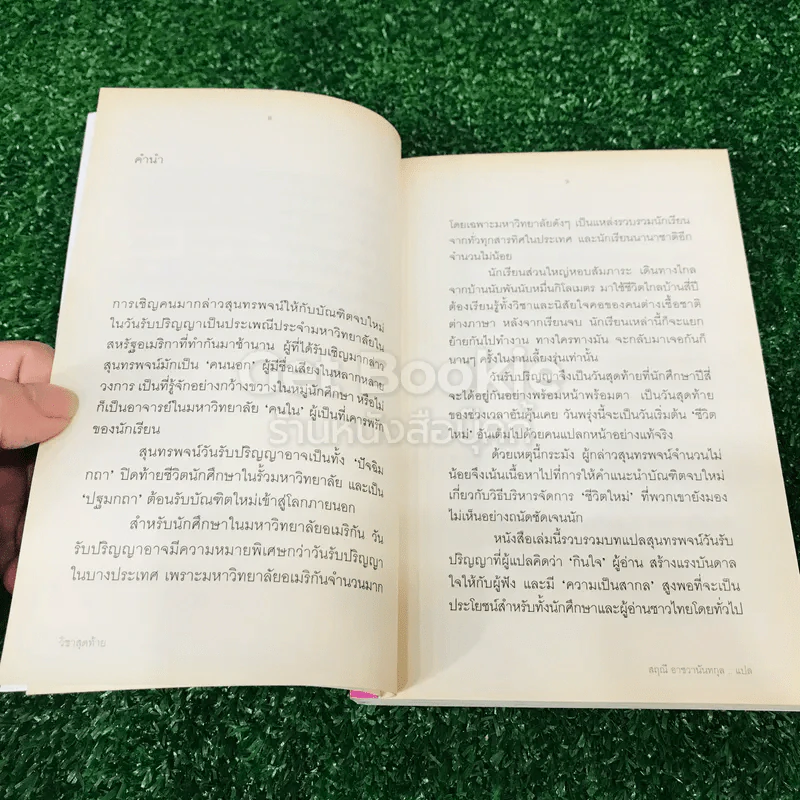 คำนำ
การเชิญคนมากล่าวสุนทรพจน์ให้กับบัณฑิตจบใหม่
ในวันรับปริญญาเป็นประเพณีประจำมหาวิทยาลัยใน
สหรัฐอเมริกาที่ทำกันมาช้านาน ผู้ที่ได้รับเชิญมากล่าว
สุนทรพจน์มักเป็น ‘คนนอก’ ผู้มีชื่อเสียงในหลากหลาย
วงการ เป็นที่รู้จักอย่างกว้างขวางในหมู่นักศึกษา หรือไม่
ก็เป็นอาจารย์ในมหาวิทยาลัย ‘คนใน’ ผู้เป็นที่เคารพรัก
ของนักเรียน
สุนทรพจน์วันรับปริญญาอาจเป็นทั้ง ‘ปัจฉิม
กถา’ ปิดท้ายชีวิตนักศึกษาในรั้วมหาวิทยาลัย และเป็น
‘ปฐมกถา’ ต้อนรับบัณฑิตใหม่เข้าสู่โลกภายนอก
สำหรับนักศึกษาในมหาวิทยาลัยอเมริกัน วัน
รับปริญญาอาจมีความหมายพิเศษกว่าวันรับปริญญา
ในบางประเทศ เพราะมหาวิทยาลัยอเมริกันจำนวนมาก
วิชาสุดท้าย
โดยเฉพาะมหาวิทยาลัยดังๆ เป็นแหล่งรวบรวมนักเรียน
จากทั่วทุกสารทิศในประเทศ และนักเรียนนานาชาติอีก
จำนวนไม่น้อย
นักเรียนส่วนใหญ่หอบสัมภาระ เดินทางไกล
จากบ้านนับพันนับหมื่นกิโลเมตร มาใช้ชีวิตไกลบ้านสี่ปี
ต้องเรียนรู้ทั้งวิชาและนิสัยใจคอของคนต่างเชื้อชาติ
ต่างภาษา หลังจากเรียนจบ นักเรียนเหล่านี้ก็จะแยก
ย้ายกันไปทำงาน ทางใครทางมัน จะกลับมาเจอกันก็
นานๆ ครั้งในงานเลี้ยงรุ่นเท่านั้น
วันรับปริญญาจึงเป็นวันสุดท้ายที่นักศึกษาปีสี่
จะได้อยู่กันอย่างพร้อมหน้าพร้อมตา เป็นวันสุดท้าย
ของช่วงเวลาอันคุ้นเคย วันพรุ่งนี้จะเป็นวันเริ่มต้น ‘ชีวิต
ใหม่’ อันเต็มไปด้วยคนแปลกหน้าอย่างแท้จริง
ด้วยเหตุนี้กระมัง ผู้กล่าวสุนทรพจน์จำนวนไม่
น้อยจึงเน้นเนื้อหาไปที่การให้คำแนะนำบัณฑิตจบใหม่
เกี่ยวกับวิธีบริหารจัดการ ‘ชีวิตใหม่’ ที่พวกเขายังมอง
ไม่เห็นอย่างถนัดชัดเจนนัก
หนังสือเล่มนี้รวบรวมบทแปลสุนทรพจน์วันรับ
ปริญญาที่ผู้แปลคิดว่า ‘กินใจ’ ผู้อ่าน สร้างแรงบันดาล
ใจให้กับผู้ฟัง และมี ‘ความเป็นสากล’ สูงพอที่จะเป็น
ประโยชน์สำหรับทั้งนักศึกษาและผู้อ่านชาวไทยโดยทั่วไป
สฤณี อาชวานันทกุล : แปล